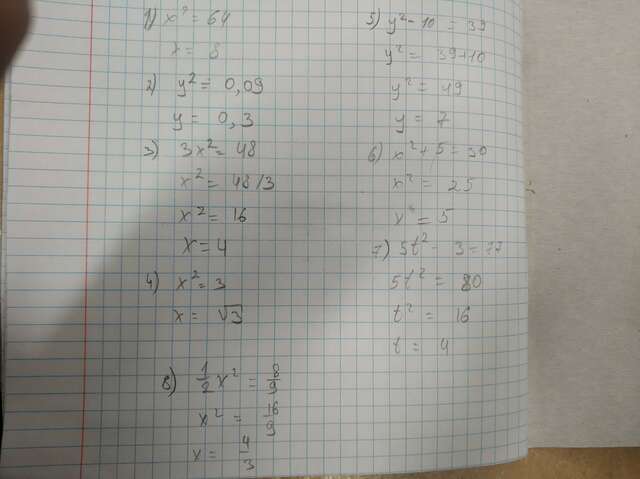 1) x² = 64
x = 8
2) y² = 0,09
y = 0,3
3) 3x² = 48
x² = 48/3
x² = 16
x = 4
4) x² = 3
x = √3
8) 1/2 x² = 8/9
x² = 16/9
x = 4/3
5) y² - 10 = 39
y² = 39+10
y² = 49
y = 7
6) x² + 5 = 30
x² = 25
x² = 5
7) 5t² - 3 = 77
5t² = 80
t² = 16
t = 4